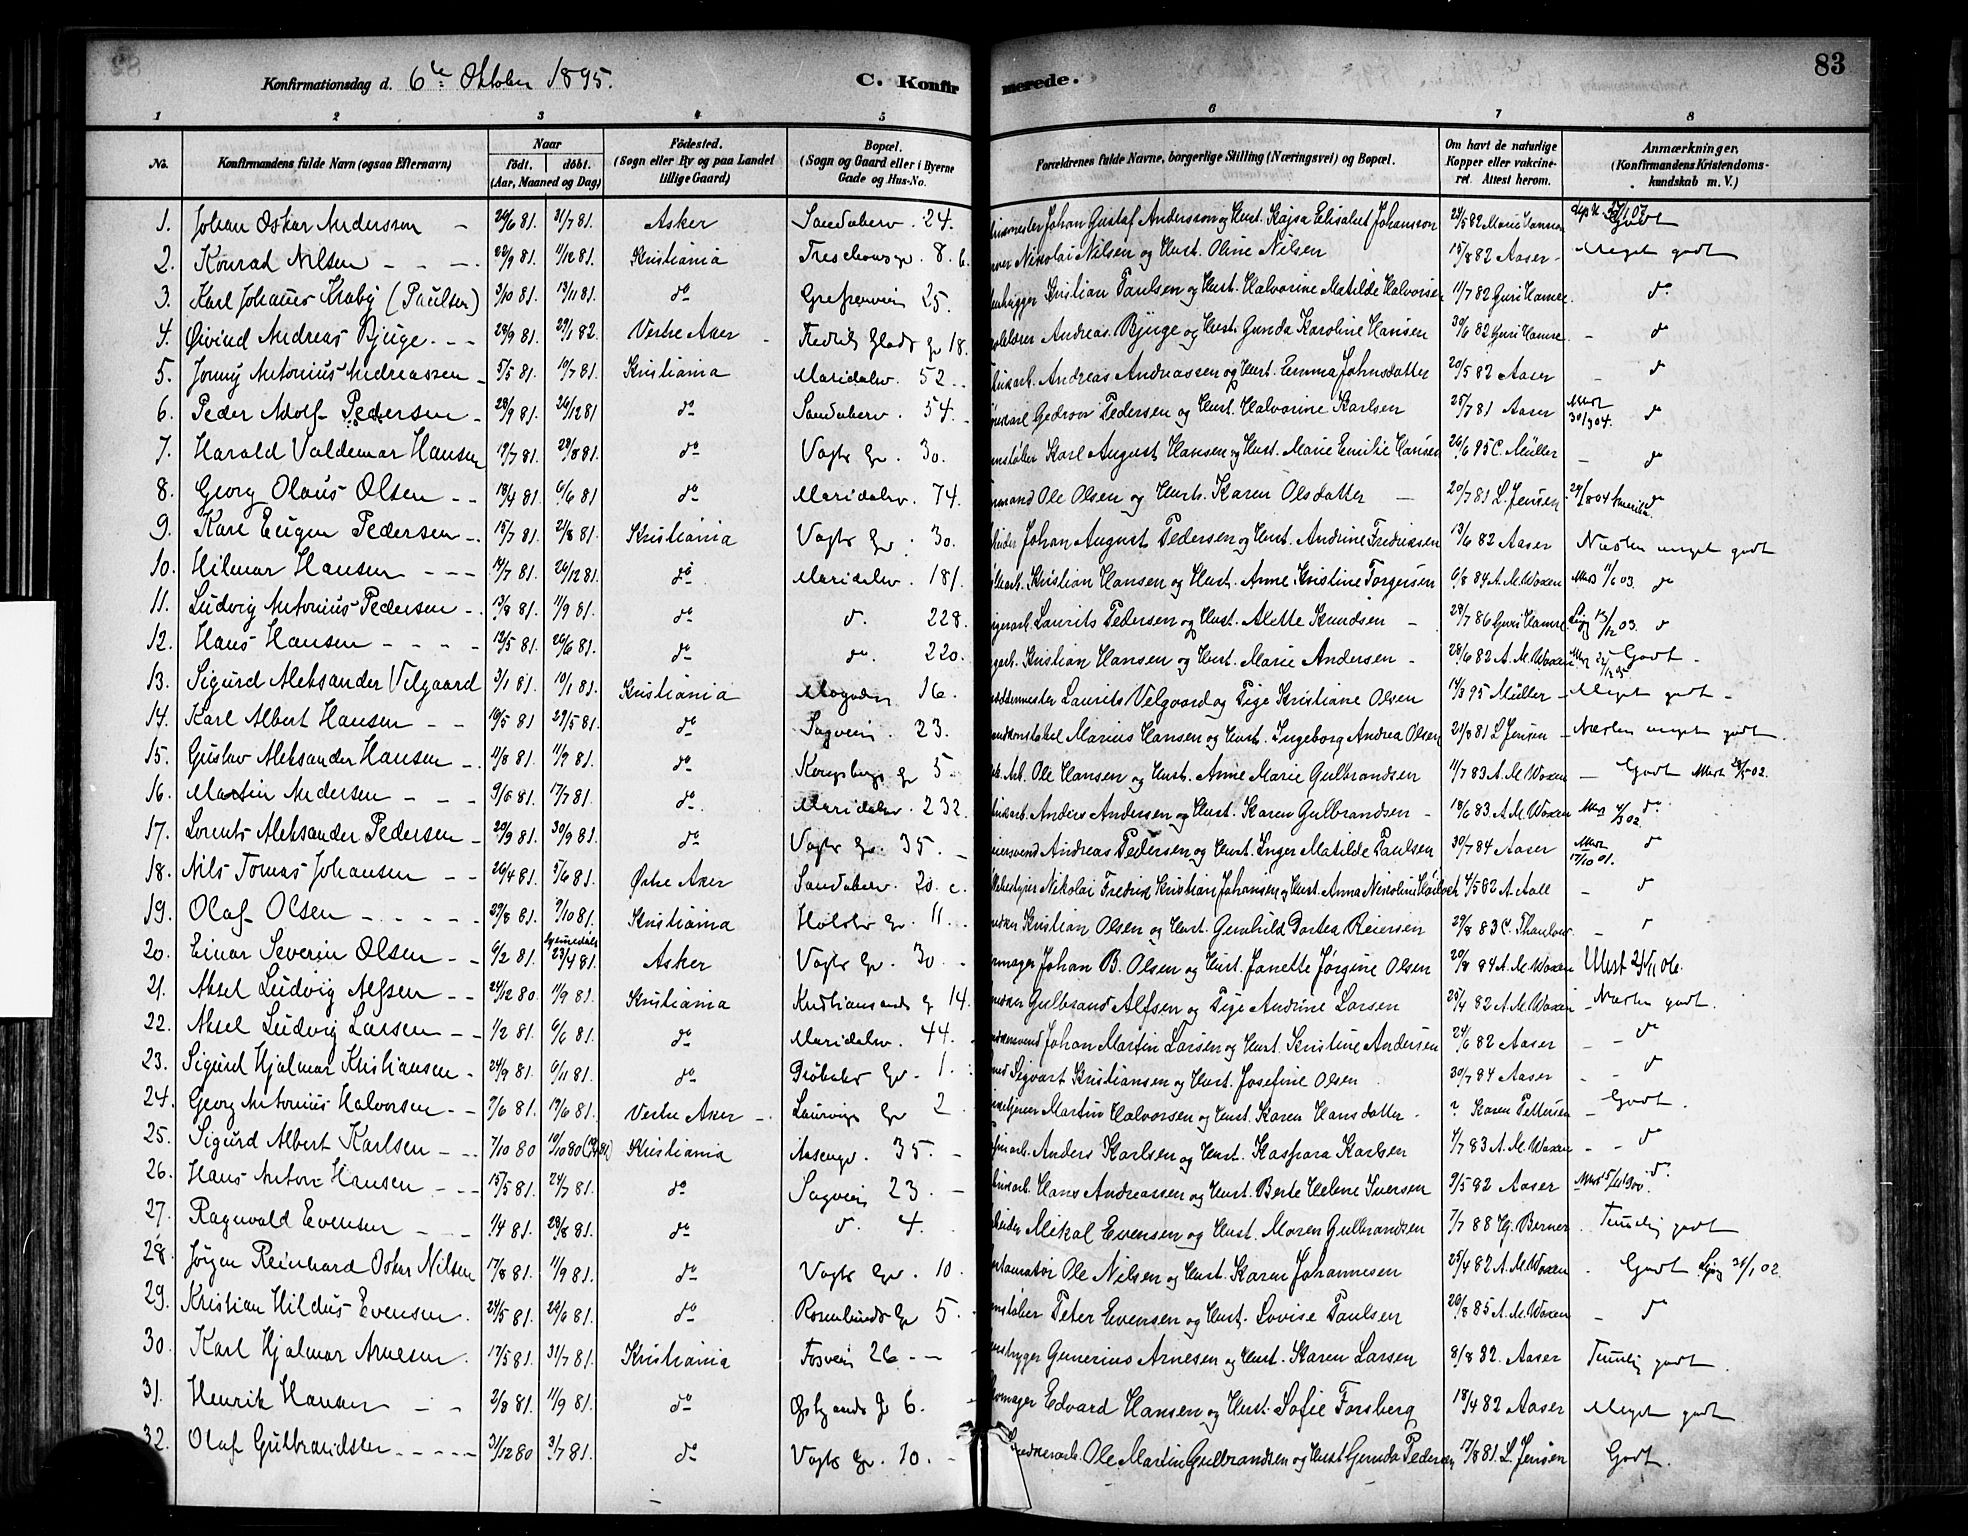 83
Konfirmationsdag d. 6te Oktober 1895. C. Konfirmerede.
1 2 3 4 5 6 7 8
No. Konfirmandens fulde Navn (ogsaa Efternavn) Naar födt. döbt. (Aar, Maaned og Dag) Födested. (Sogn eller By og paa Landet tillige Gaard) Bopæl. (Sogn og Gaard eller i Byerne Gade og Hus-No. Forældrenes fulde Navne, borgerlige Stilling (Næringsvei) og Bopæl. Om havt de naturlige Kopper eller vakcineret. Attest herom. Anmærkninger. (Konfirmandens Kristendomskundskab m. V.)
1. Johan Oskar Andersson - 31/7 81. Asker Sandakerv. 24. Johan Gustaf Andersson og Hust. Kajsa Elisabet Johansson Godt
2. Konrad Nilsen - - - 28/9 81. 11/12 81. Kristiania Treschowsg. 8. b. Nikolai Nilsen og Hust. Oline Nilsen 15/8 82 Aaser - Meget godt
3. Karl Johanes Kraby (Paulsen) 3/10 81. 13/11 81. do Grefsenvein 25. Kristian Paulsen og Hust. Halvorine Matilde Halvorsen 11/7 82 Guri Hamre. do
4. Øivind Andreas Bjuge. - - 28/9 81. 29/1 82. Vestre Aker Fredrik Glads Gd 18. Andreas Bjuge og Hust. Gunda Karoline Hansen 30/6 82 Guri Hamre. - do
5. Jonny Antonius Andreassen - 5/5 81. 10/7 81. Kristiania Maridalsv. 52. - Andreas Andreassen og Hust. Emma Johnsdatter 20/5 82 Aaser - do
6. Peder Adolf Pedersen - 28/9 81. 26/12 81 do Sandakerv. 54. - Pedersen og Hust. Halvorine Karlsen 25/7 81 Aaser Attest 30/3 04. do
7. Harald Valdemar Hansen 19/7 81. 28/8 81. do Vogts Gd. 30. Karl August Hansen og Hust. Marie Emilie Hansen 26/6 95 C. Müller - do
8. Georg Olaus Olsen - - 18/4 81 6/6 81 do Maridalsv. 74. Ole Olsen og Hust. Karen Olsdatter - 20/7 81 L. Jensen 04 Amerika. do
9. Karl Eugen Pedersen -. 15/7 81. 21/8 81. Kristiania Vogts Gd. 30. Johan August Pedersen og Hust. Andrine Fredriksen 13/6 82 Aaser Næsten meget godt
10. Hilmar Hansen - - - 14/7 81. 26/12 81. do. Maridalsv. 181. Kristian Hansen og Hust. Anne Kristine Torgersen 6/8 84 A. M. Woxen Attest 11/6 03. do
11. Ludvig Antonius Pedersen -. 13/8 81. 11/9 81. do do. 228. Laurits Pedersen og Hust. Alette Knudsen - 28/7 86 Guri Hamre. 13/12 03. do
12. Hans Hansen - - - - 12/5 81. 26/6 81. do do. 220. Kristian Hansen og Hust. Marie Andersen - 28/6 82 A. M. Woxen Godt -
13. Sigurd Aleksander Velgaard 3/1 81. 19/1 81. Kristiania 16. Laurits Velgaard og Pige Kristiane Olsen 14/3 95 Müller - Meget godt -
14. Karl Albert Hansen - - 10/5 81 29/5 81. do Sagvein 23. Marius Hansen og Hust. Ingeborg Andrea Olsen 21/8 81 L Jensen - Næsten meget godt.
15. Gustav Aleksander Hansen -. 4/8 81. 11/9 81. do Kongsbergs Gd 5. Ole Hansen og Hust. Anne Marie Gulbrandsen 11/7 83 A. M. Woxen - Godt Attest 02.
16. Martin Andersen - - - 9/6 81. 17/7 81. do. Maridalsv. 232. Anders Andersen og Hust. Karen Gulbrandsen - 18/6 83. A. M. Woxen Attest 4/3 02. do
17. Lorents Aleksander Pedersen - 30/9 81. do Vogts Gd. 35. - Andreas Pedersen og Hust. Inger Matilde Paulsen 30/7 84 Aaser Attest 17/10 01. do
18. Nils Tomas Johansen - - 26/4 81. 5/6 81. Østre Aker Sandakerv. 20. c. Nikolai Fredrik Kristian Johansen og Hust. Anna Nikoline 4/5 82 A. Aall - do
19. Olaf Olsen - - - - - 29/8 81. 9/10 81. Kristiania Holsts Gd. 11. Kristian Olsen og Hust. Gunhild Dortea Reiersen 29/8 83 C. Thaulow - do
20. Einar Severin Olsen - - 6/2 81. 23/4 81. Asker Vogts Gd. 30. - Johan B. Olsen og Hust. Janette Jørgine Olsen 20/8 84 A. M. Woxen Attest 24/11 06.
21. Aksel Ludvig Alfsen - - 24/12 80 11/9 81. Kristiania Kristiansands Gd 14. Gulbrand Alfsen og Pige Andrine Larsen 25/4 82 A. M. Woxen - Næsten godt.
22. Aksel Ludvig Larsen - - 1/2 81. 6/6 81. do Maridalsv. 44. - Johan Martin Larsen og Hust. Kristine Andersen 24/6 82 Aaser - - do
23. Sigurd Hjalmar Kristiansen - 24/9 81. 6/11 81. do Drøbaks Gd. 1. Sigvart Kristiansen og Hust. Josefine Olsen 30/7 84 Aaser - - do
24. Georg Antonius Halvorsen - - 7/6 81. 19/6 81. Vestre Aker - Laurvigs Gd 2 Martin Halvorsen og Hust. Karen Hansdatter - ? Karen Pettersen - Godt.
25. Sigurd Albert Karlsen - - 7/10 80 Kristiania Aasengd. 35. - Anders Karlsen og Hust. Kaspara Karlsen 4/7 83 A. M. Woxen - - do
26. Hans Anton Hansen - - 15/5 81. 24/7 81. do Sagvein 23. - Hans Andreassen og Hust. Berte Helene Iversen 9/5 82 Aaser do
27. Ragnvald Evensen - 1/4 81. 28/8 81. do do. 4. Mikal Evensen og Hust. Maren Gulbrandsen 7/7 88 Hj. Berner. Temmelig godt
28. Jørgen Reinhard Oskar Nilsen 17/8 81. 11/9 81. do Vogts Gd. 10. Ole Nilsen og Hust. Karen Johannesen 25/4 82 A. M. Woxen - Godt 31/1 02.
29. Kristian Hildus Evensen. 24/5 81. 26/6 81. do Rosenlunds Gd 5 - Peter Evensen og Hust. Lovise Paulsen 20/8 85 A. M. Woxen - do
30. Karl Hjalmar Arnesen. 17/5 81. 31/7 81. Kristiania Fosvein 26 - - Gunerius Arnesen og Hust. Karen Larsen 8/8 82. Aaser Temmelig godt.
31. Henrik Hansen - - 2/8 81. 11/9 81. do Østgaards Gd 6. Edvard Hansen og Hust. Sofie Forsberg 18/4 82 Aaser - Meget godt
32. Olaf Gulbrandsen - - - - - 31/12 80 3/7 81. do Vogts Gd. 10. - Ole Martin Gulbrandsen og Hust Gunda Pedersen 17/8 81. L. Jensen Godt.